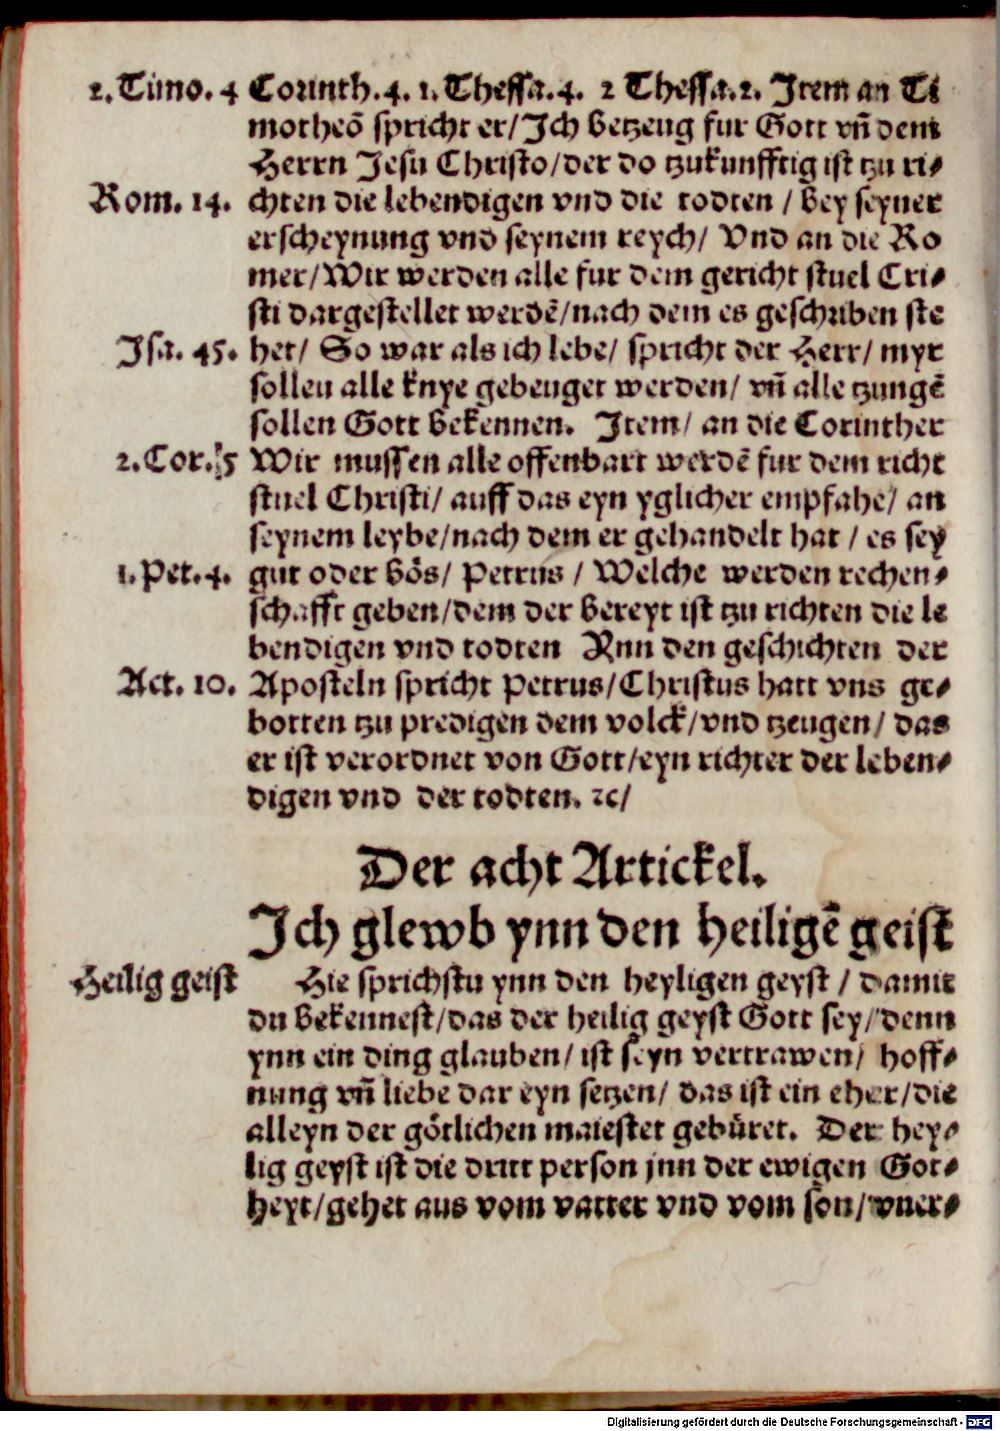 2. Timo. 4 Corinth. 4. 1. Thessa. 4. 2 Thessa. 2. Item an Ti
motheõ spricht er/ Ich betzeug fur Gott vñ dem
Herrn Jesu Christo/ der do tzukunfftig ist tzu ri⸗
Rom. 14. chten die lebendigen vnd die todten / bey seyner
erscheynung vnd seynem reych/ Vnd an die Ro
mer/ Wir werden alle fur dem gericht stuel Cri⸗
sti dargestellet werdē/ nach dem es geschriben ste
Isa. 45. het/ So war als ich lebe/ spricht der Herr/ myr
sollen alle knye gebeuget werden/ vñ alle tzungē
sollen Gott bekennen. Item/ an die Corinther
2. Cor. 5 Wir mussen alle offenbart werdē fur dem richt
stuel Christi/ auff das eyn yglicher empfahe/ an
seynem leybe/ nach dem er gehandelt hat / es sey
1. Pet. 4. gut oder bös/ Petrus / Welche werden rechen⸗
schafft geben/ dem der bereyt ist tzu richten die le
bendigen vnd todten Ynn den geschichten der
Act. 10. Aposteln spricht Petrus/ Christus hatt vns ge⸗
botten tzu predigen dem volck/ vnd tzeugen/ das
er ist verordnet von Gott/ eyn richter der leben⸗
digen vnd der todten. ꝛc/
Der acht Artickel.
Ich glewb ynn den heiligē geist
Heilig geist Hie sprichstu ynn den heyligen geyst / damit
du bekennest/ das der heilig geyst Gott sey/ denn
ynn ein ding glauben/ ist seyn vertrawen/ hoff⸗
nung vñ liebe dar eyn setzen/ das ist ein eher/ die
alleyn der götlichen maiestet gebüret. Der hey⸗
lig geyst ist die dritt person jnn der ewigen Got⸗
heyt/ gehet aus vom vatter vnd vom son/ vner⸗
Digitalisierung gefördert durch die Deutsche Forschungsgemeinschaft - DFG